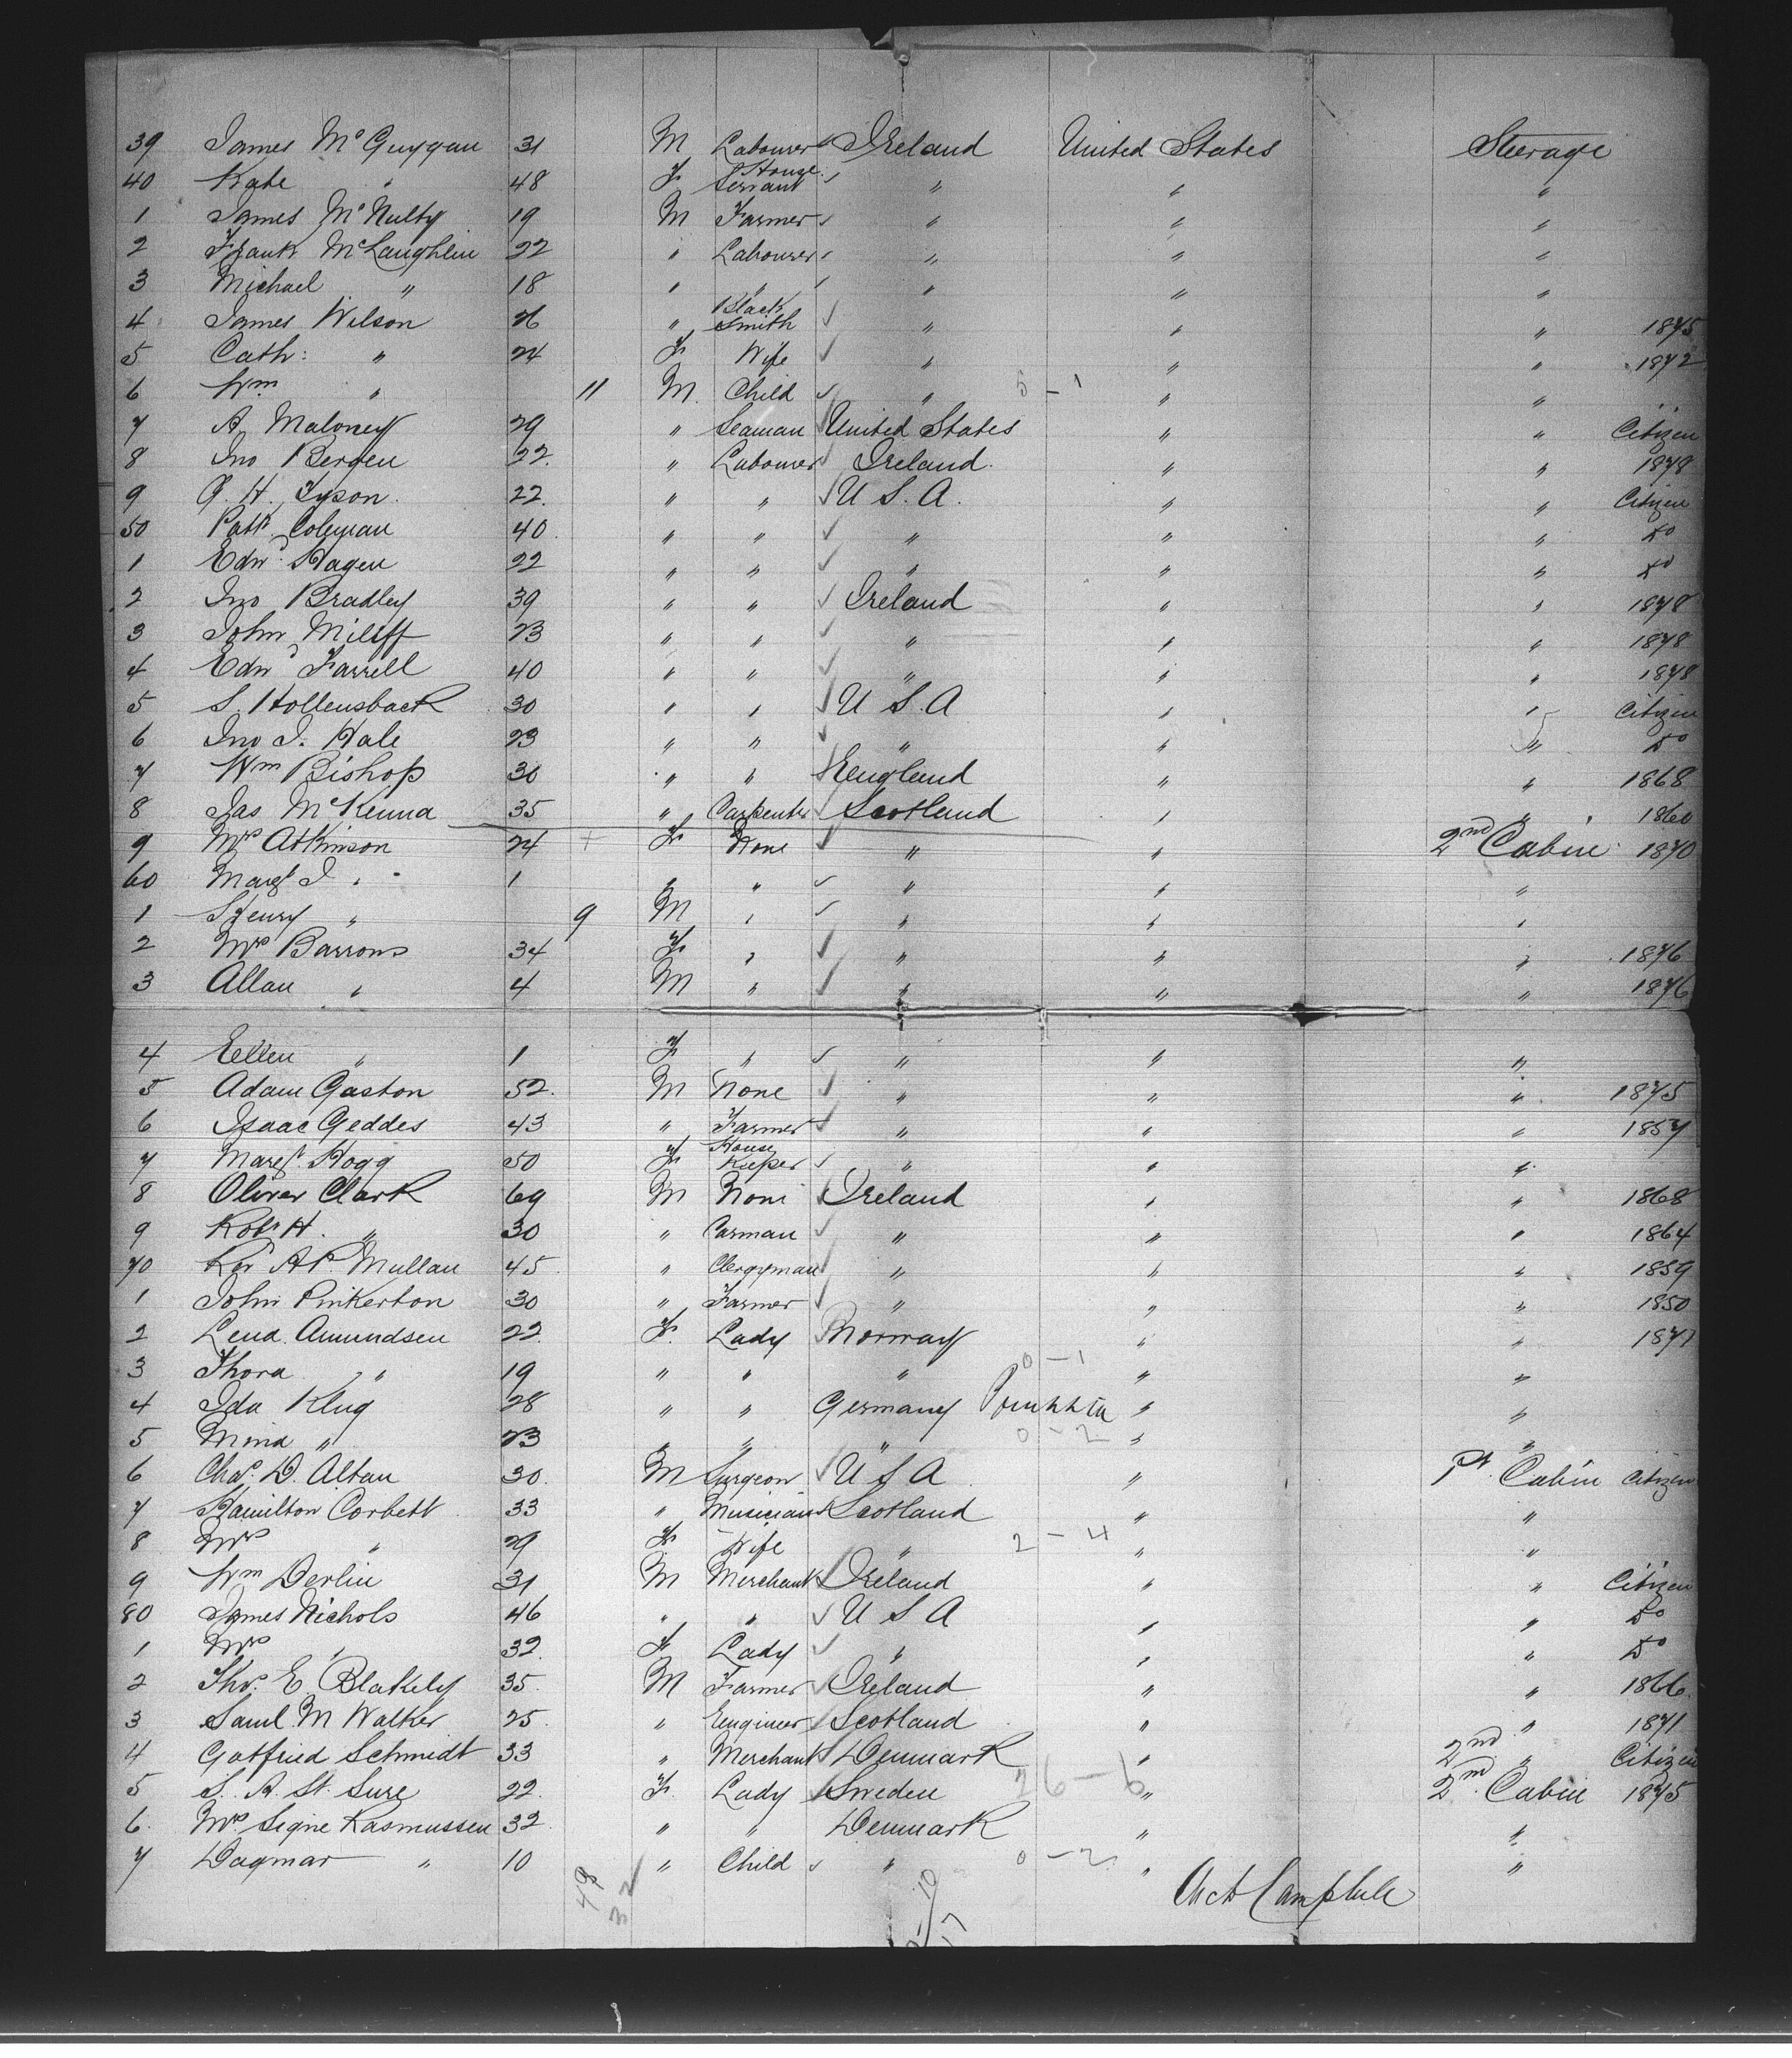 39 James McGuygan 31 M Labourer Ireland United States Steerage
40 Kate " 48 F House Servant " " "
1 James McNulty 19 M Farmer " " "
2 Frank McLaughlin 22 " Labourer " " "
3 Michael " 18 " " " " "
4 James Wilson 26 " Black Smith " " " 1875
5 Cath: " 24 F Wife " " " 1872
6 Wm " 11 M Child " 5-1 " "
7 A Maloney 29 " Seaman United States " " Citizen
8 Jno Bergen 22 " Labourer Ireland " " 1878
9 G. H. Tyson 22 " " U S. A. " " Citizen
50 Patk Coleman 40 " " " " " Do
1 Edwd Hagen 22 " " " " " Do
2 Jno Bradley 39 " " Ireland " " 1878
3 John Miliff 23 " " " " " 1878
4 Edwd Farrell 40 " " " " " 1878
5 S. Hollensback 30 " " U S. A " " Citizen
6 Jno J. Hale 23 " " " " " Do
7 Wm Bishop 30 " " England " " 1868
8 Jas McKenna 35 " Carpenter Scotland " " 1860
9 Mrs Atkinson 24 F None " " 2nd Cabin 1870
60 Margt J " 1 " " " " "
1 Henry " 9 M " " " "
2 Mrs Barrons 34 F " " " " 1876
3 Allan " 4 M " " " " 1876
4 Ellen " 1 F " " " "
5 Adam Gaston 52 M None " " " 1875
6 Isaac Geddes 43 " Farmer " " " 1857
7 Margt. Hogg 50 F House Keeper " " "
8 Oliver Clark 69 M None Ireland " " 1868
9 Robt H. " 30 " Carman " " " 1864
70 Rev A P. Mullan 45 " Clergyman " " " 1859
1 John Pinkerton 30 " Farmer " " " 1850
2 Lena Amundsen 22 F Lady Norway " " 1877
3 Thora " 19 " " " 0-1 " "
4 Ida Klug 28 " " Germany Prussia " "
5 Mina " 23 " " " 0-2 " "
6 Chas. D. Altan 30 M Surgeon U S A " 1st. Cabin Citizen
7 Hamilton Corbett 33 " Musician Scotland " "
8 Mrs " 29 F Wife " 2-4 " "
9 Wm Derlin 31 M Merchant Ireland " " Citizen
80 James Nichols 46 " " U S A " " Do
1 Mrs " 32 F Lady " " " Do
2 Thos. E. Blakely 35 M Farmer Ireland " " 1866
3 Saml. M Walker 25 " Engineer Scotland " " 1871
4 Gotfried Schmidt 33 " Merchant Denmark " 2nd " Citizen
5 S. A. St. Sure 22 F Lady Sweden 26-6 " 2nd Cabin 1875
6 Mrs Signe Rasmussen 32 " " Denmark " "
7 Dagmar " 10 " Child " 0-2 " "
Arch Campbell